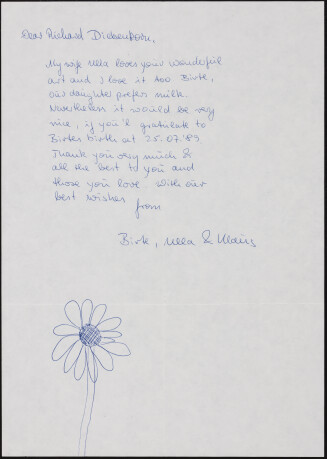 Dear Richard Diebenkorn,
My wife Ulla loves your wonderful
art and I love it too. Birte,
our daughter prefers milk.
Nevertheless it would be very
nice, if you'll gratulate to
Birtes birth at 25.07.89
Thank you very much &
all the best to you and
those you love. With our
best wishes
from
Birte, Ulla & Klaus